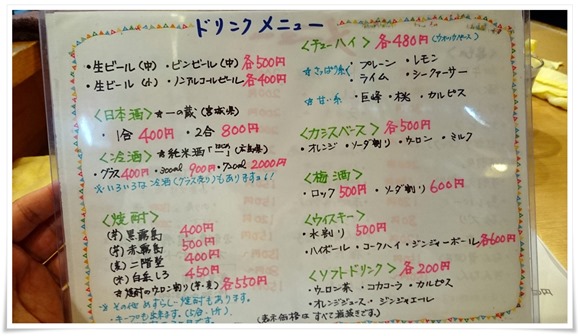 ドリンクメニュー
・生ビール(中) ・ビンビール(中) 各500円
・生ビール(小) ・ノンアルコールビール 各400円
<日本酒> ☆一の蔵(宮城県)
・1合 400円 ・2合 800円
<冷酒> ☆純米酒
・グラス 400円 ・300ml 900円 ・720ml 2000円
※いろいろな冷酒(グラス売り)もあります
<焼酎>
(芋)黒霧島 400円
(芋)赤霧島 500円
(麦)二階堂 400円
(米)白岳しろ 450円
☆焼酎のウーロン割り(芋・麦) 各550円
☆その他めずらしー焼酎もあります。
<チューハイ> 各480円 (ウオッカベース)
☆さっぱり系 ・プレーン ・レモン
・ライム ・シークァーサー
☆甘い系 ・巨峰 ・桃 ・カルピス
<カシスベース> 各500円
・オレンジ ・ソーダ割り ・ウーロン ・ミルク
<梅酒>
・ロック 500円 ・ソーダ割り 600円
<ウイスキー>
・水割り 500円
・ハイボール ・コークハイ ・ジンジィーボール 各600円
<ソフトドリンク> 各200円
・ウーロン茶 ・コカコーラ ・カルピス
・オレンジジュース ・ジンジャエール
(表示価格はすべて税抜きです。)